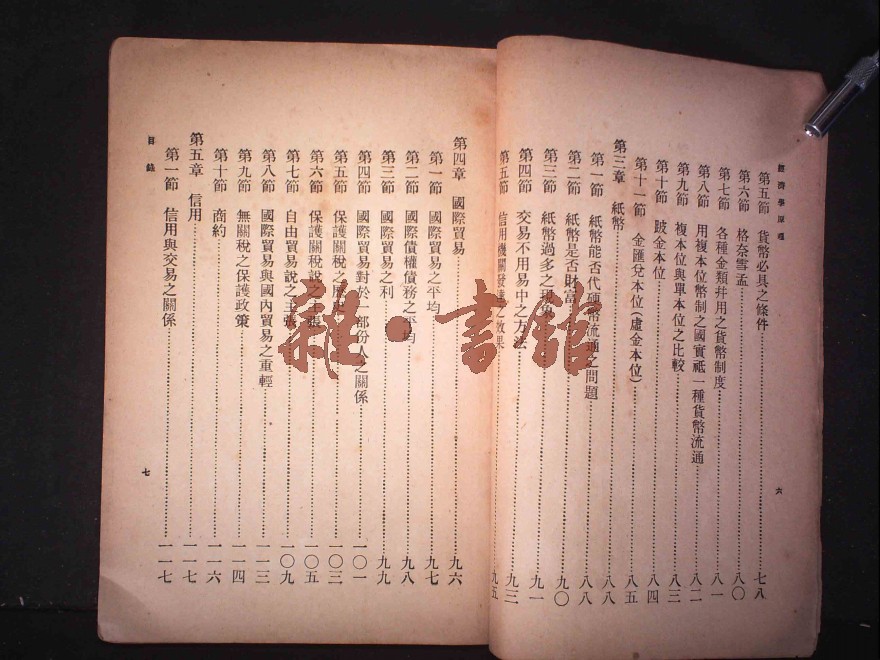 經濟學原理
第五節 貨幣必具之條件 七八
第六節 格奈雪孟 八〇
第七節 各種金類幷用之貨幣制度 八一
第八節 用複本位幣制之國實祗一種貨幣流通 八二
第九節 複本位與單本位之比較 八三
第十節 跛金本位 八四
第十一節 金匯兌本位(虛金本位) 八五
第三章 紙幣 八八
第一節 紙幣能否代硬幣流通之問題 八八
第二節 紙幣是否財富 九〇
第三節 紙幣過多之現象 九一
第四節 交易不用易中之方法 九三
第五節 信用機關發達之效果 九五
六
第四章 國際貿易 九六
第一節 國際貿易之平均 九七
第二節 國際債權債務之平均 九八
第三節 國際貿易之利 九九
第四節 國際貿易對於一部份人之關係 一〇一
第五節 保護關稅之歷史 一〇三
第六節 保護關稅說之主張 一〇五
第七節 自由貿易說之主張 一〇九
第八節 國際貿易與國內貿易之重輕 一一三
第九節 無關稅之保護政策 一一四
第十節 商約 一一六
第五章 信用 一一七
第一節 信用與交易之關係 一一七
目錄
七
雜·書館